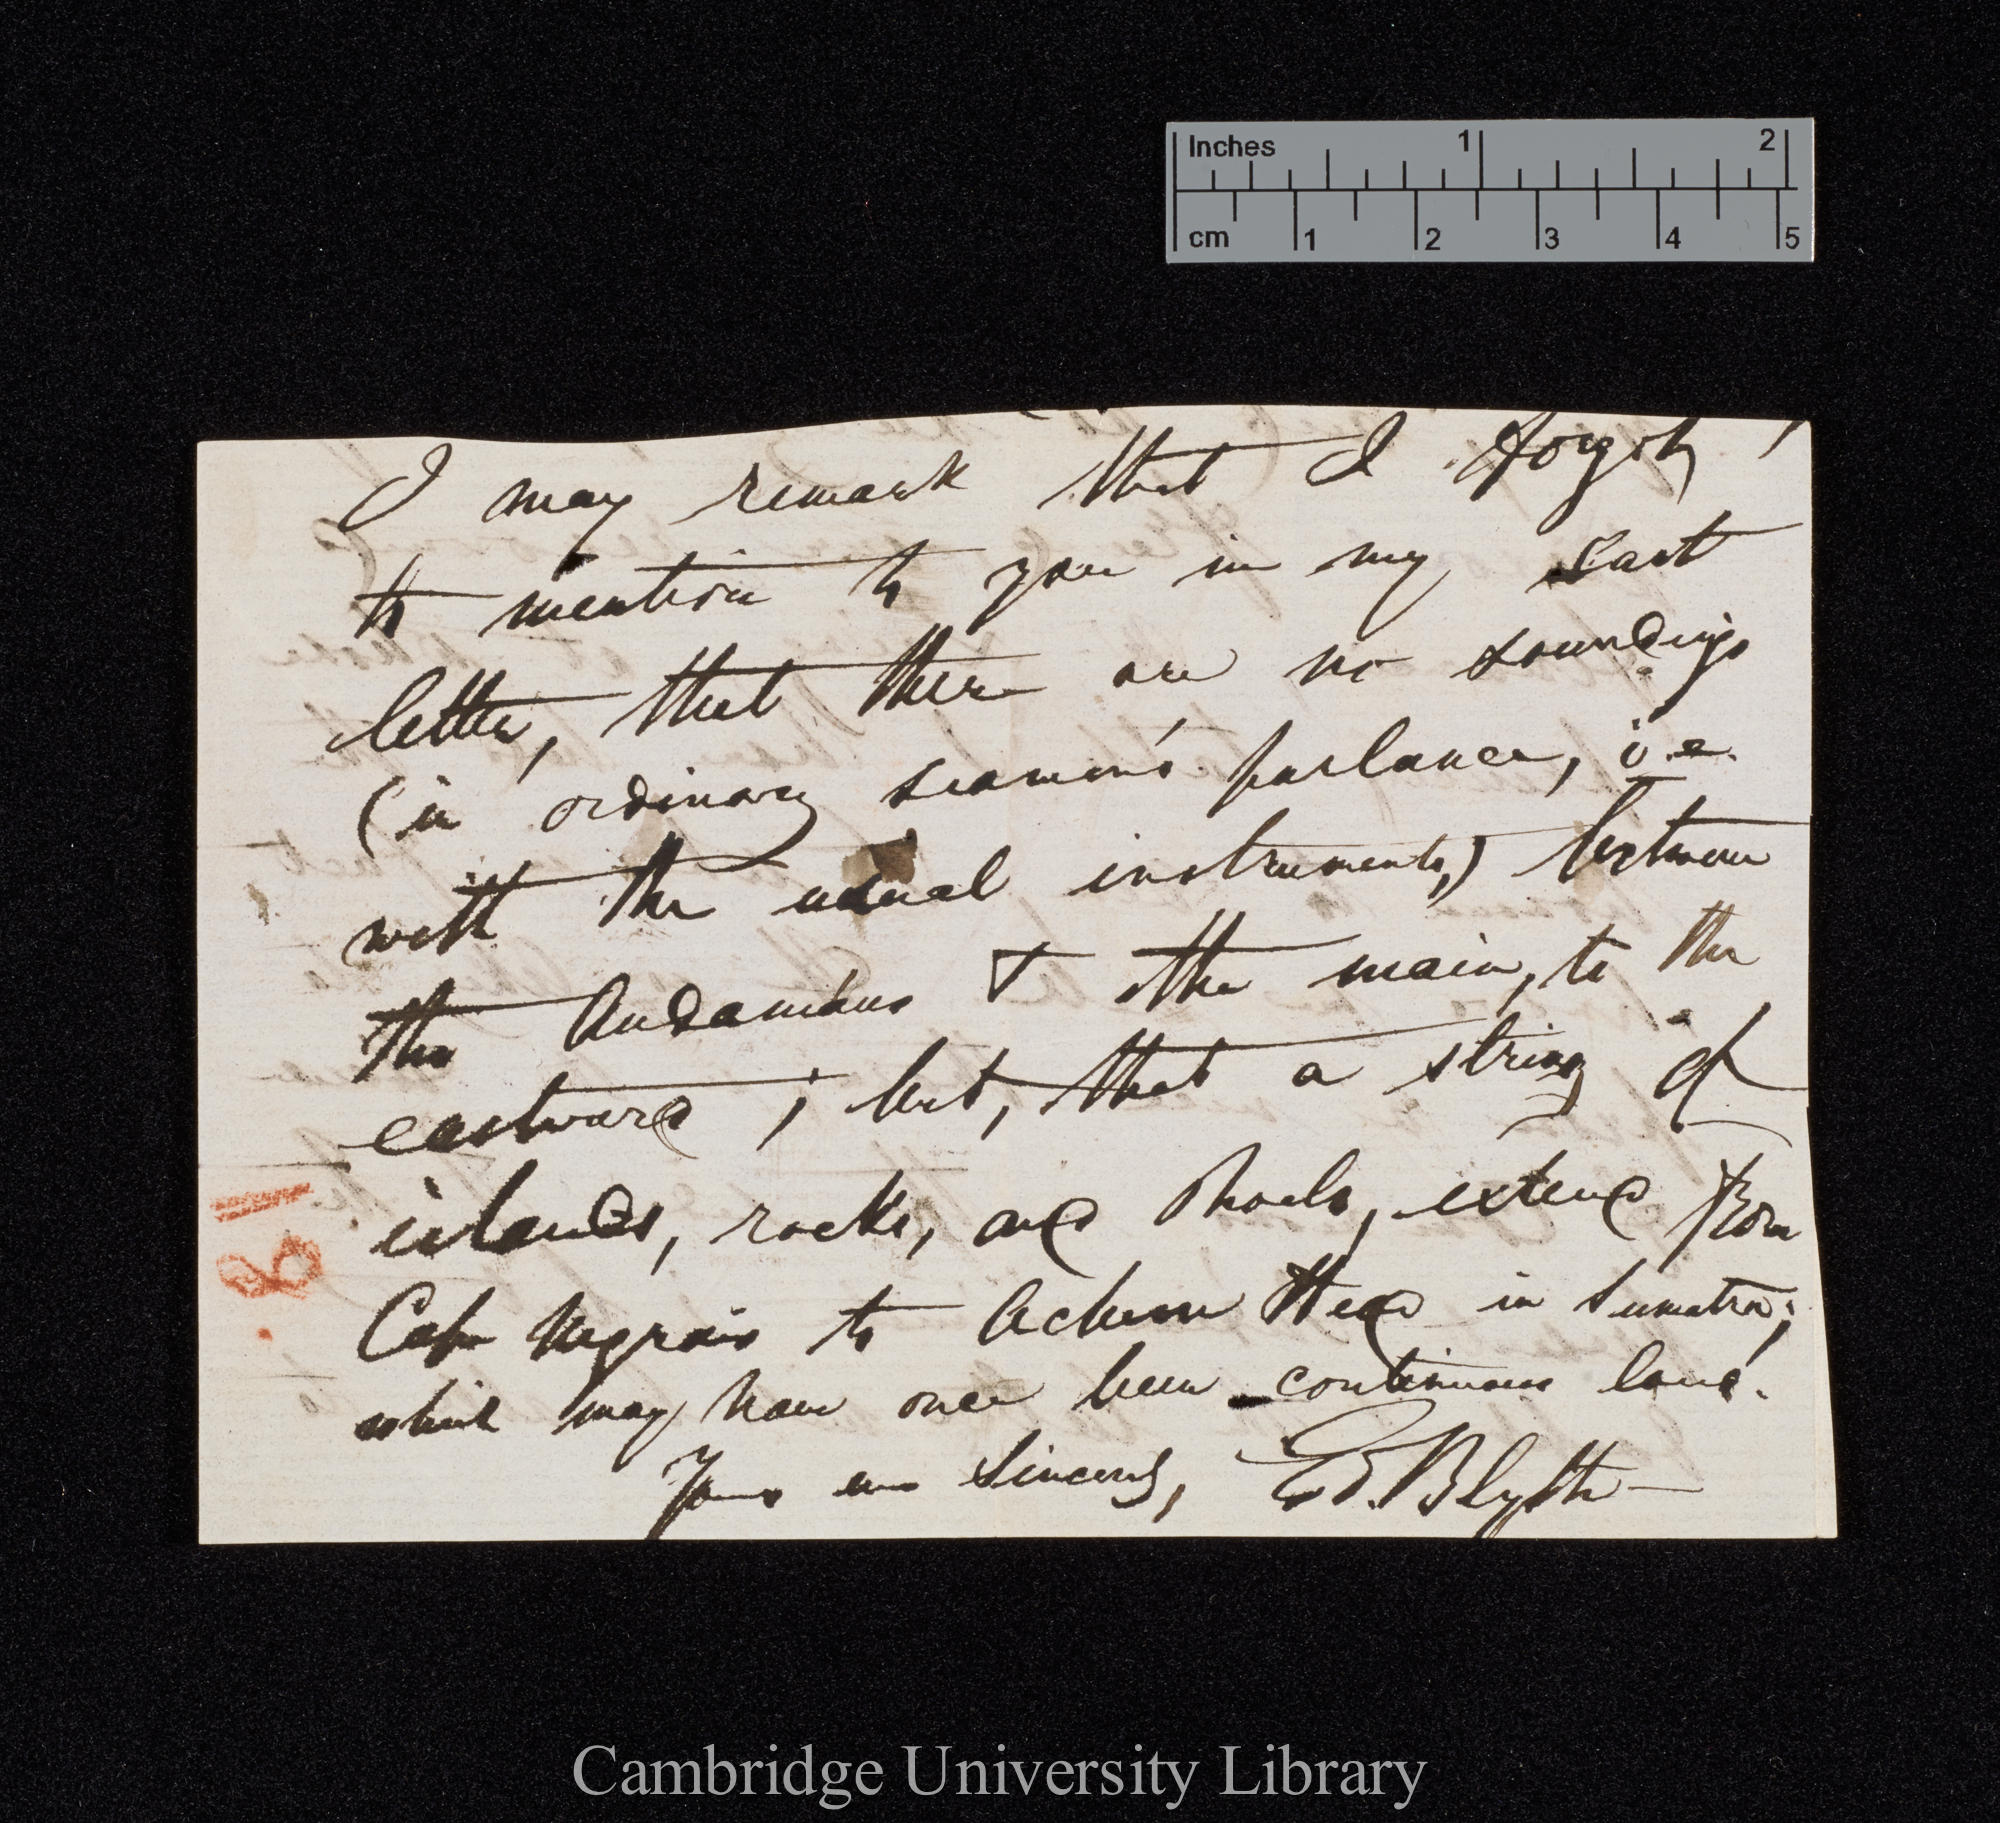 Inches 1 2
cm 1 2 3 4 5
I may remark that I forgot,
to mention to you in my last
letter, that there are no soundings
(in ordinary seamen's parlance, i.e.
with the usual instruments,) between
the Andamáns & the main, to the
eastward; but, that a string of
islands, rocks, and shoals, extend from
Cape Negrais to Acheen Head in Sumatra;
which may have once been continuous land.
Yours ever sincerely, Ed. Blyth
Cambridge University Library